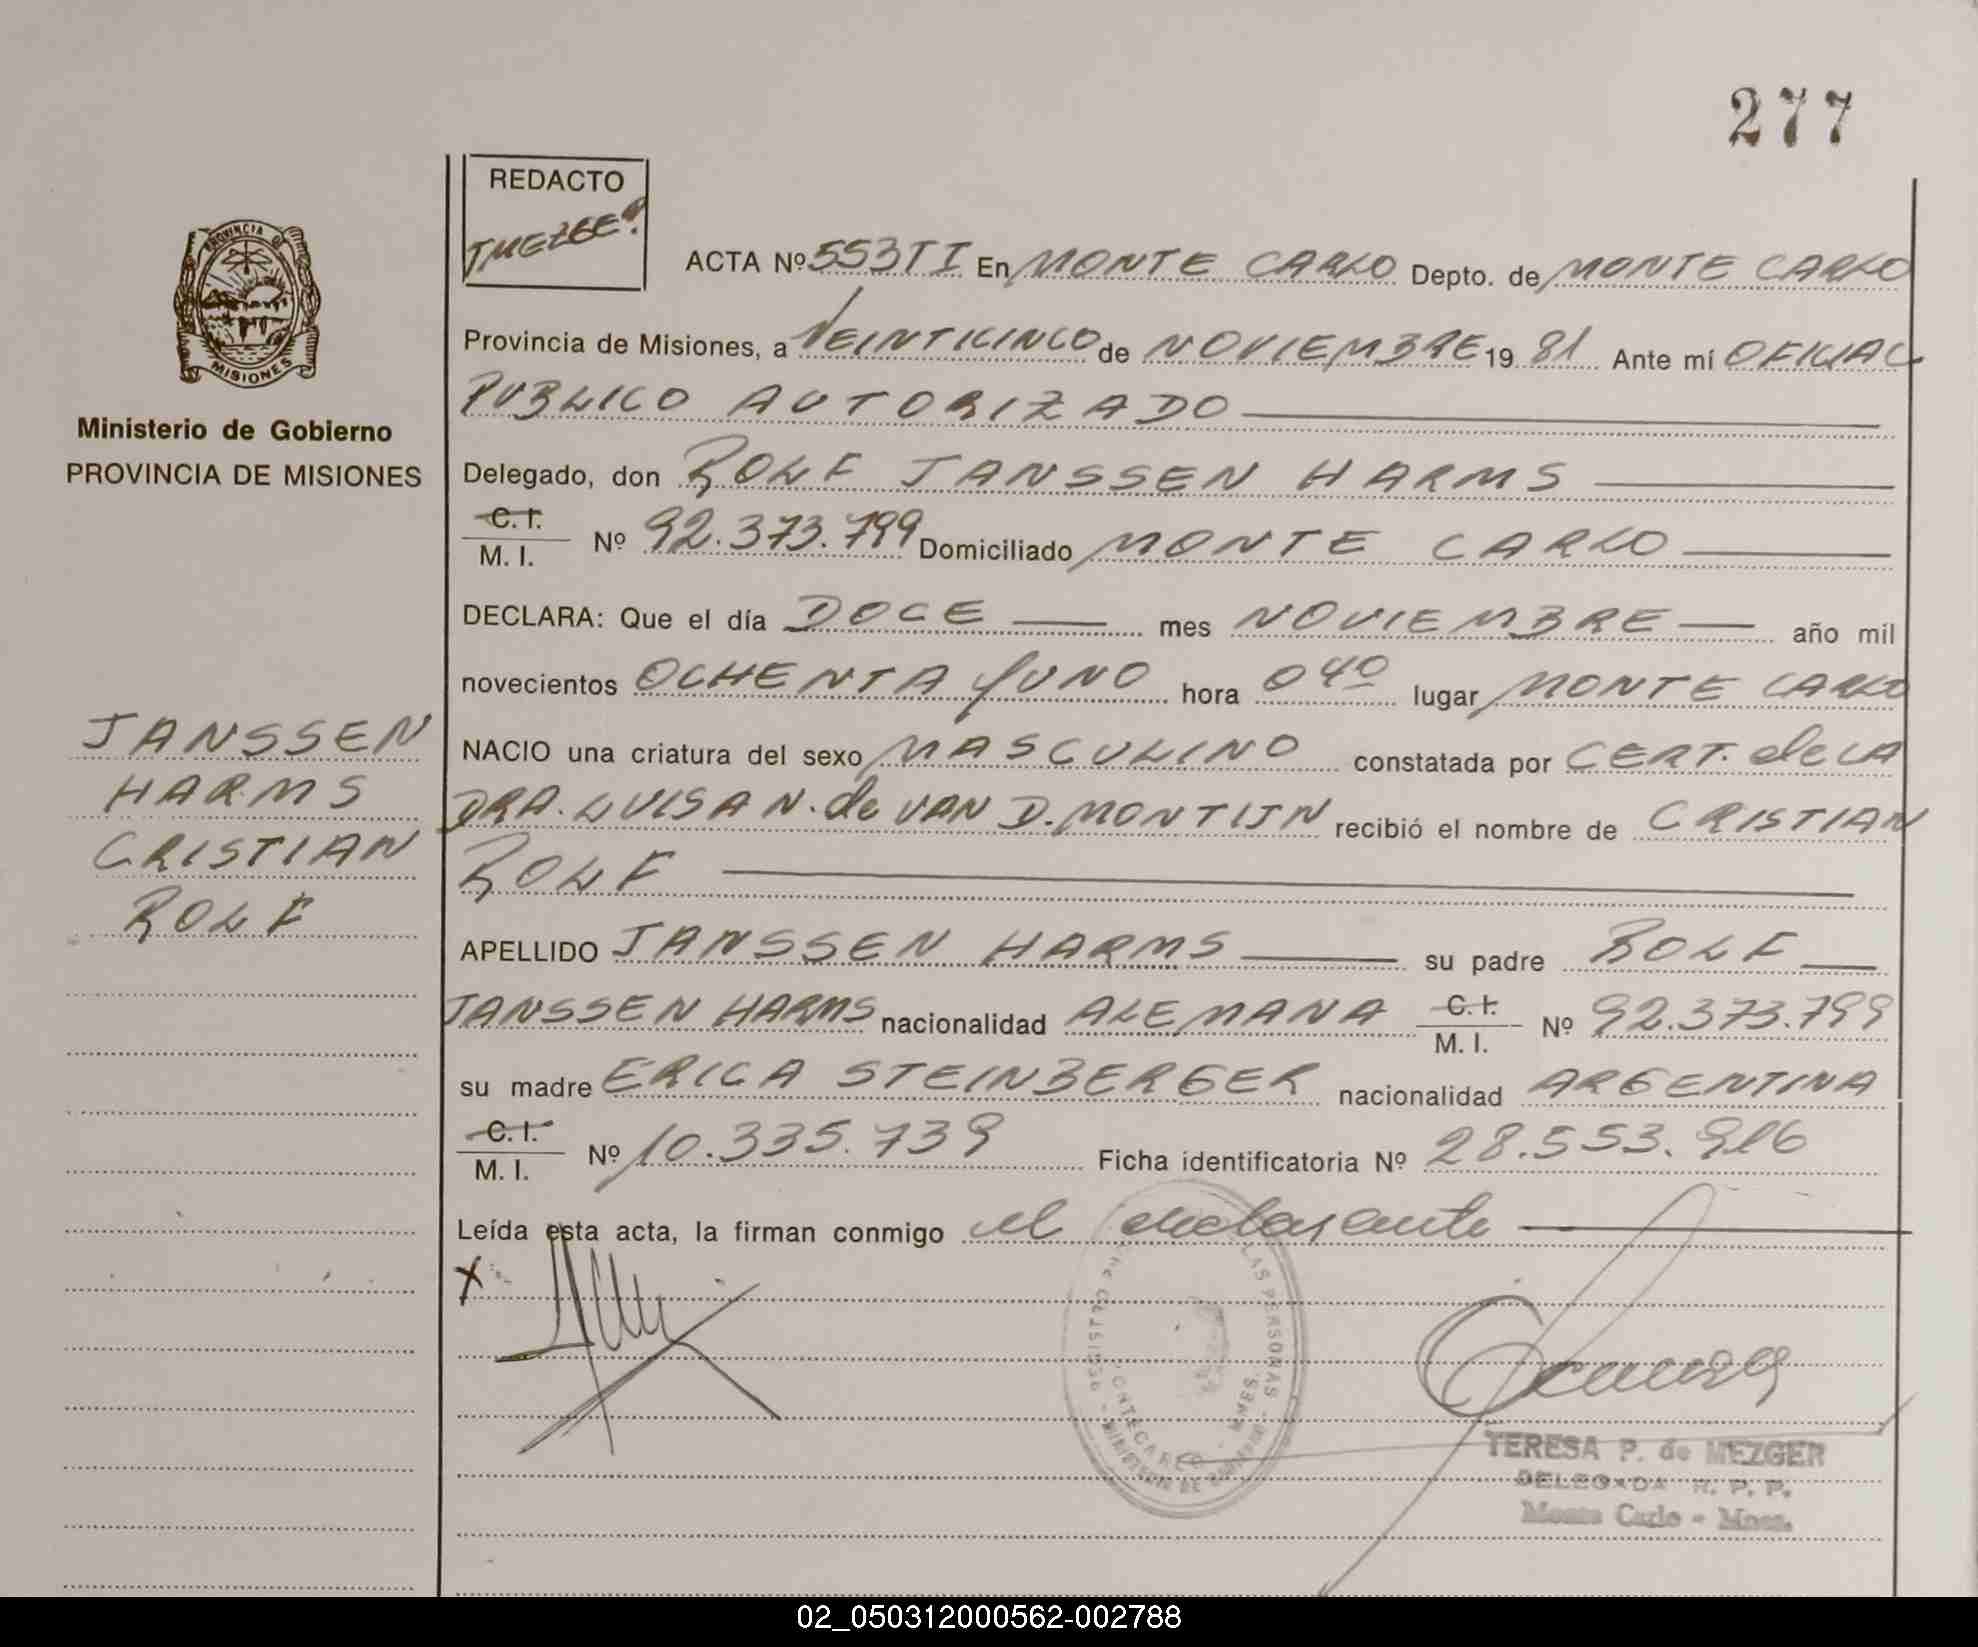 277
REDACTO
TMEZGER
PROVINCIA DE
MISIONES
Ministerio de Gobierno
PROVINCIA DE MISIONES
JANSSEN
HARMS
CRISTIAN
ROLF
ACTA Nº 553TI En MONTE CARLO Depto. de MONTE CARLO
Provincia de Misiones, a VEINTICINCO de NOVIEMBRE 19 81 Ante mí OFICIAL
PUBLICO AUTORIZADO
Delegado, don ROLF JANSSEN HARMS
C. I.
M. I. Nº 92.373.799 Domiciliado MONTE CARLO
DECLARA: Que el día DOCE mes NOVIEMBRE año mil
novecientos OCHENTA Y UNO hora 040 lugar MONTE CARLO
NACIO una criatura del sexo MASCULINO constatada por CERT. de LA
DRA. LUISA N. de VAN D. MONTIJN recibió el nombre de CRISTIAN
ROLF
APELLIDO JANSSEN HARMS su padre ROLF
JANSSEN HARMS nacionalidad ALEMANA C. I. M. I. Nº 92.373.799
su madre ERICA STEINBERGER nacionalidad ARGENTINA
C. I.
M. I. Nº 10.335.739 Ficha identificatoria Nº 28.553.916
Leída esta acta, la firman conmigo el declarante
X
LAS PERSONAS
TERESA P. de MEZGER
DELEGADA R. P. P.
Monte Carlo - Mnes.
02_050312000562-002788